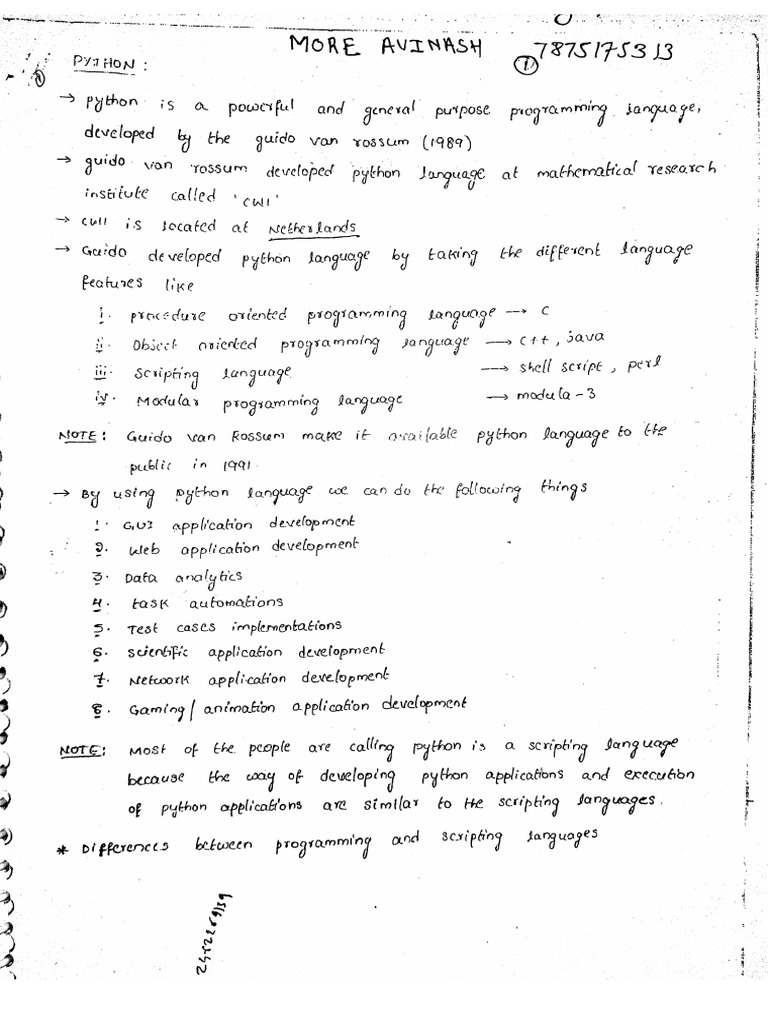 MORE AVINASH ① 7875175313
PYTHON :
→ python is a powerful and general purpose programming language,
developed by the guido van rossum (1989)
→ guido van rossum developed python language at mathematical research
institute called 'CWI'
→ CWI is located at Netherlands
→ Guido developed python language by taking the different language
features like
i. procedure oriented programming language → C
ii. Object oriented programming language → C++, java
iii. Scripting language → shell script, perl
iv. Modular programming language → modula-3
NOTE: Guido van Rossum make it available python language to the
public in 1991.
→ By using python language we can do the following things
1. GUI application development
2. Web application development
3. Data analytics
4. task automations
5. Test cases implementations
6. scientific application development
7. Network application development
8. Gaming/animation application development
NOTE: Most of the people are calling python is a scripting language
because the way of developing python applications and execution
of python applications are similar to the scripting languages.
* Differences between programming and scripting languages